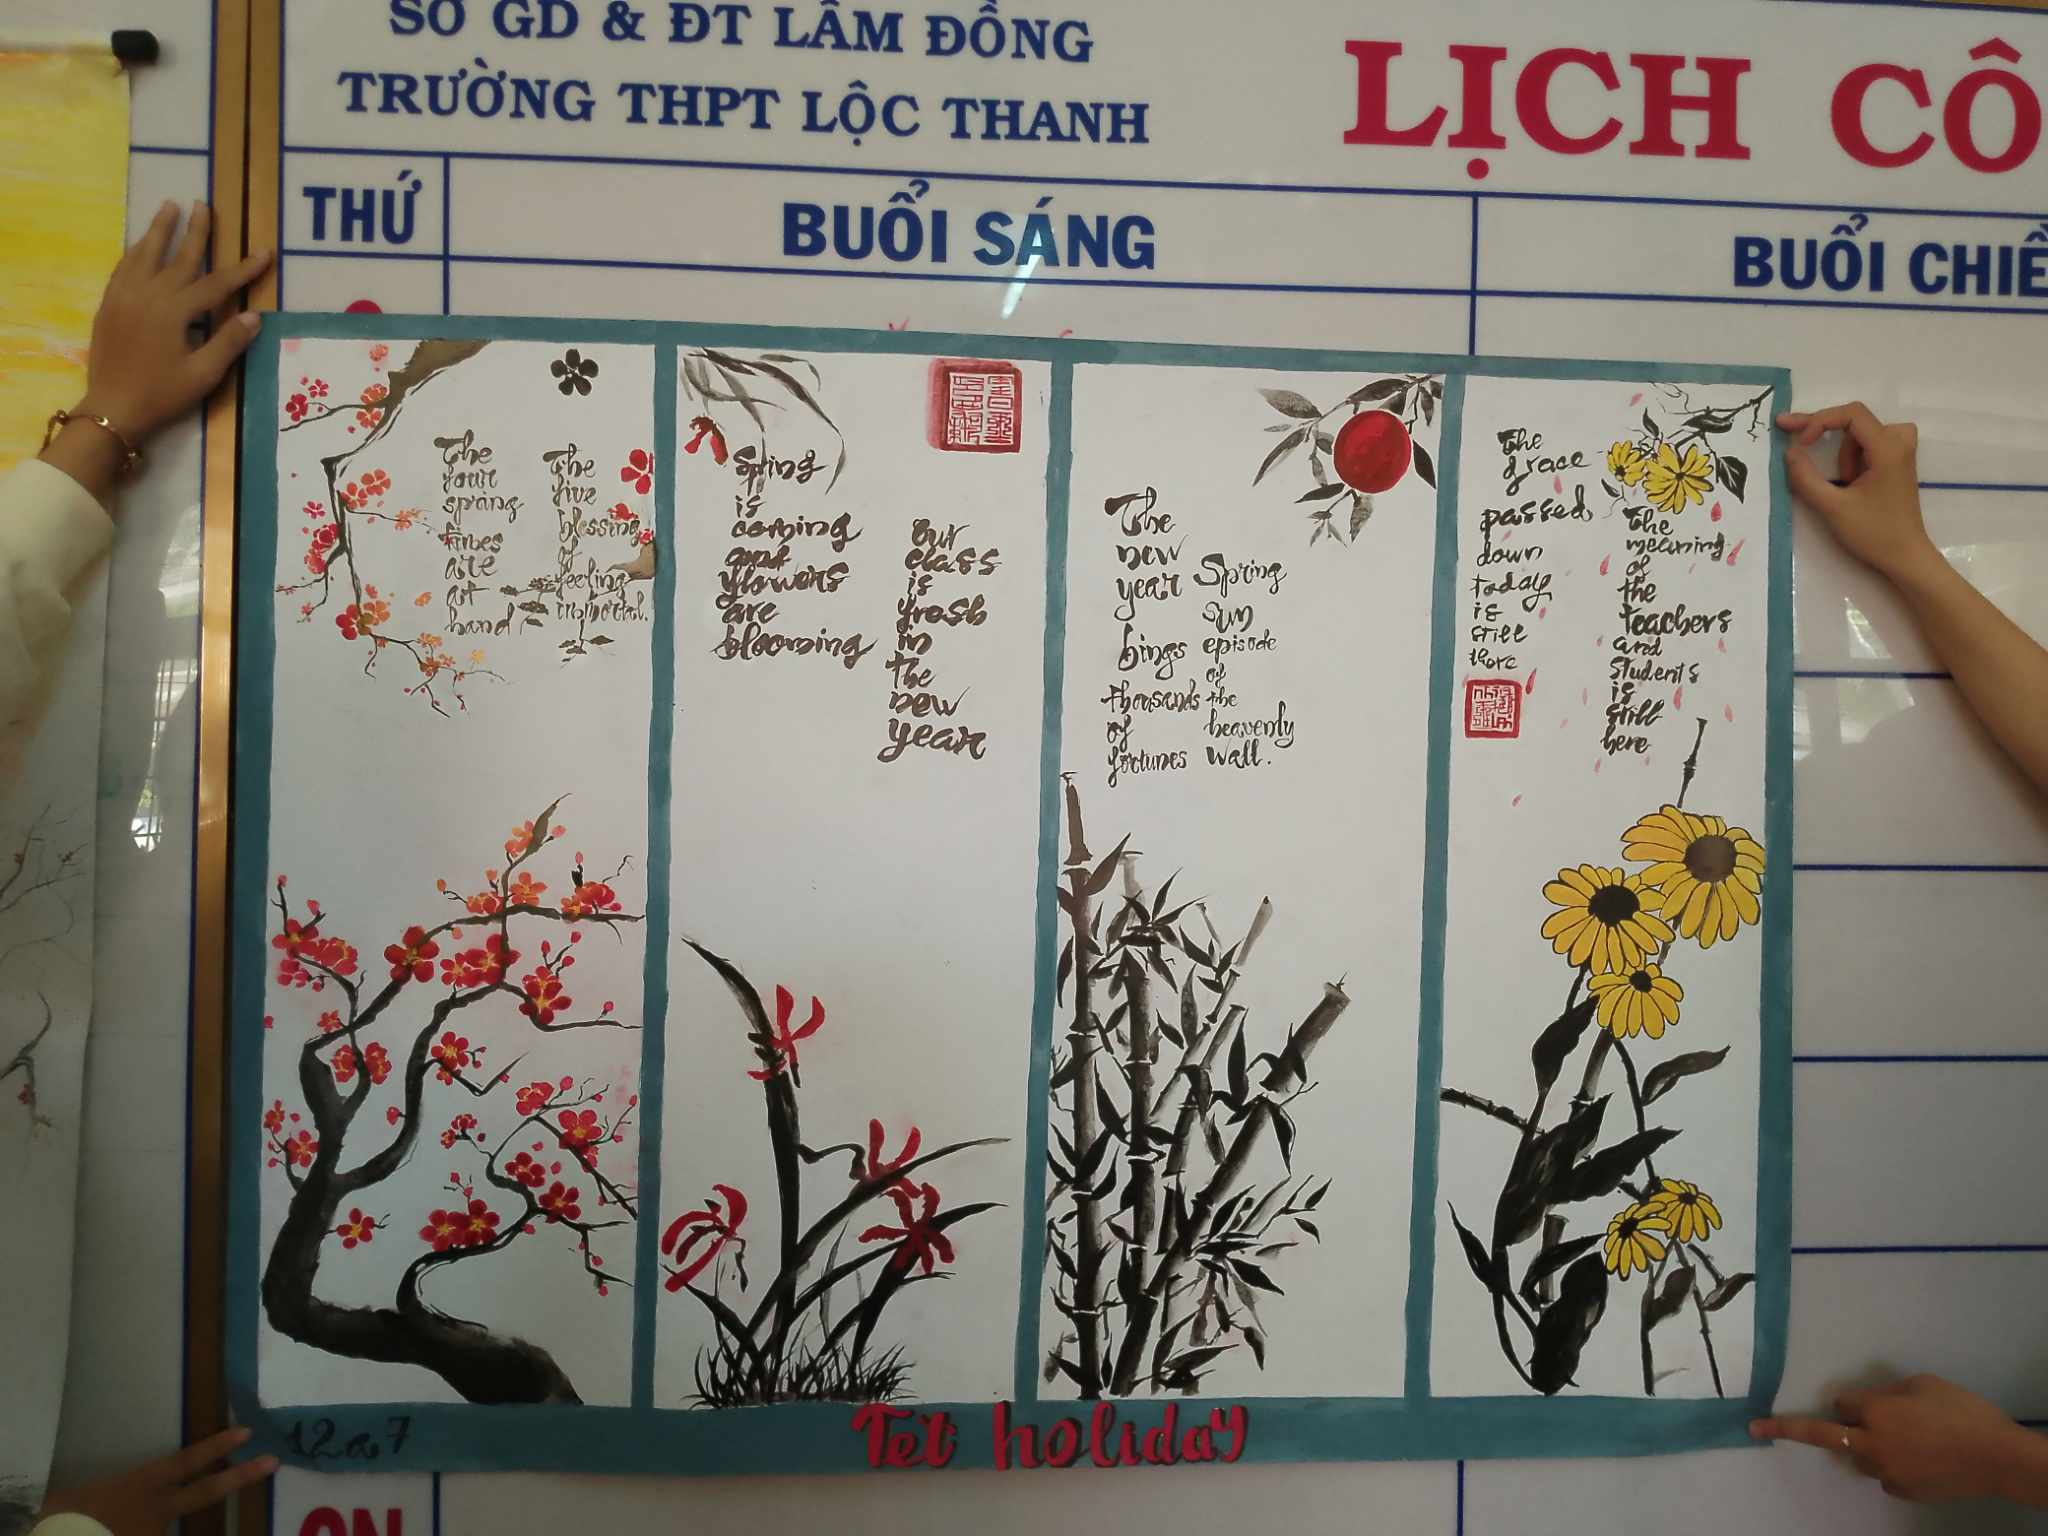 SỞ GD & ĐT LÂM ĐỒNG
TRƯỜNG THPT LỘC THANH
LỊCH CÔ
THỨ
BUỔI SÁNG
BUỔI CHIỀ
The
four
spring
times
are
at
hand
The
five
blessing
of
feeling
immortal.
Spring
is
coming
and
flowers
are
blooming
Our
class
is
fresh
in
the
new
year
The
new
year
bings
thousands
of
fortunes
Spring
sun
episode
of
the
heavenly
wall.
The
grace
passed
down
today
is
still
there
The
meaning
of
the
teachers
and
students
is
still
here
12a7
Tet holiday
CN